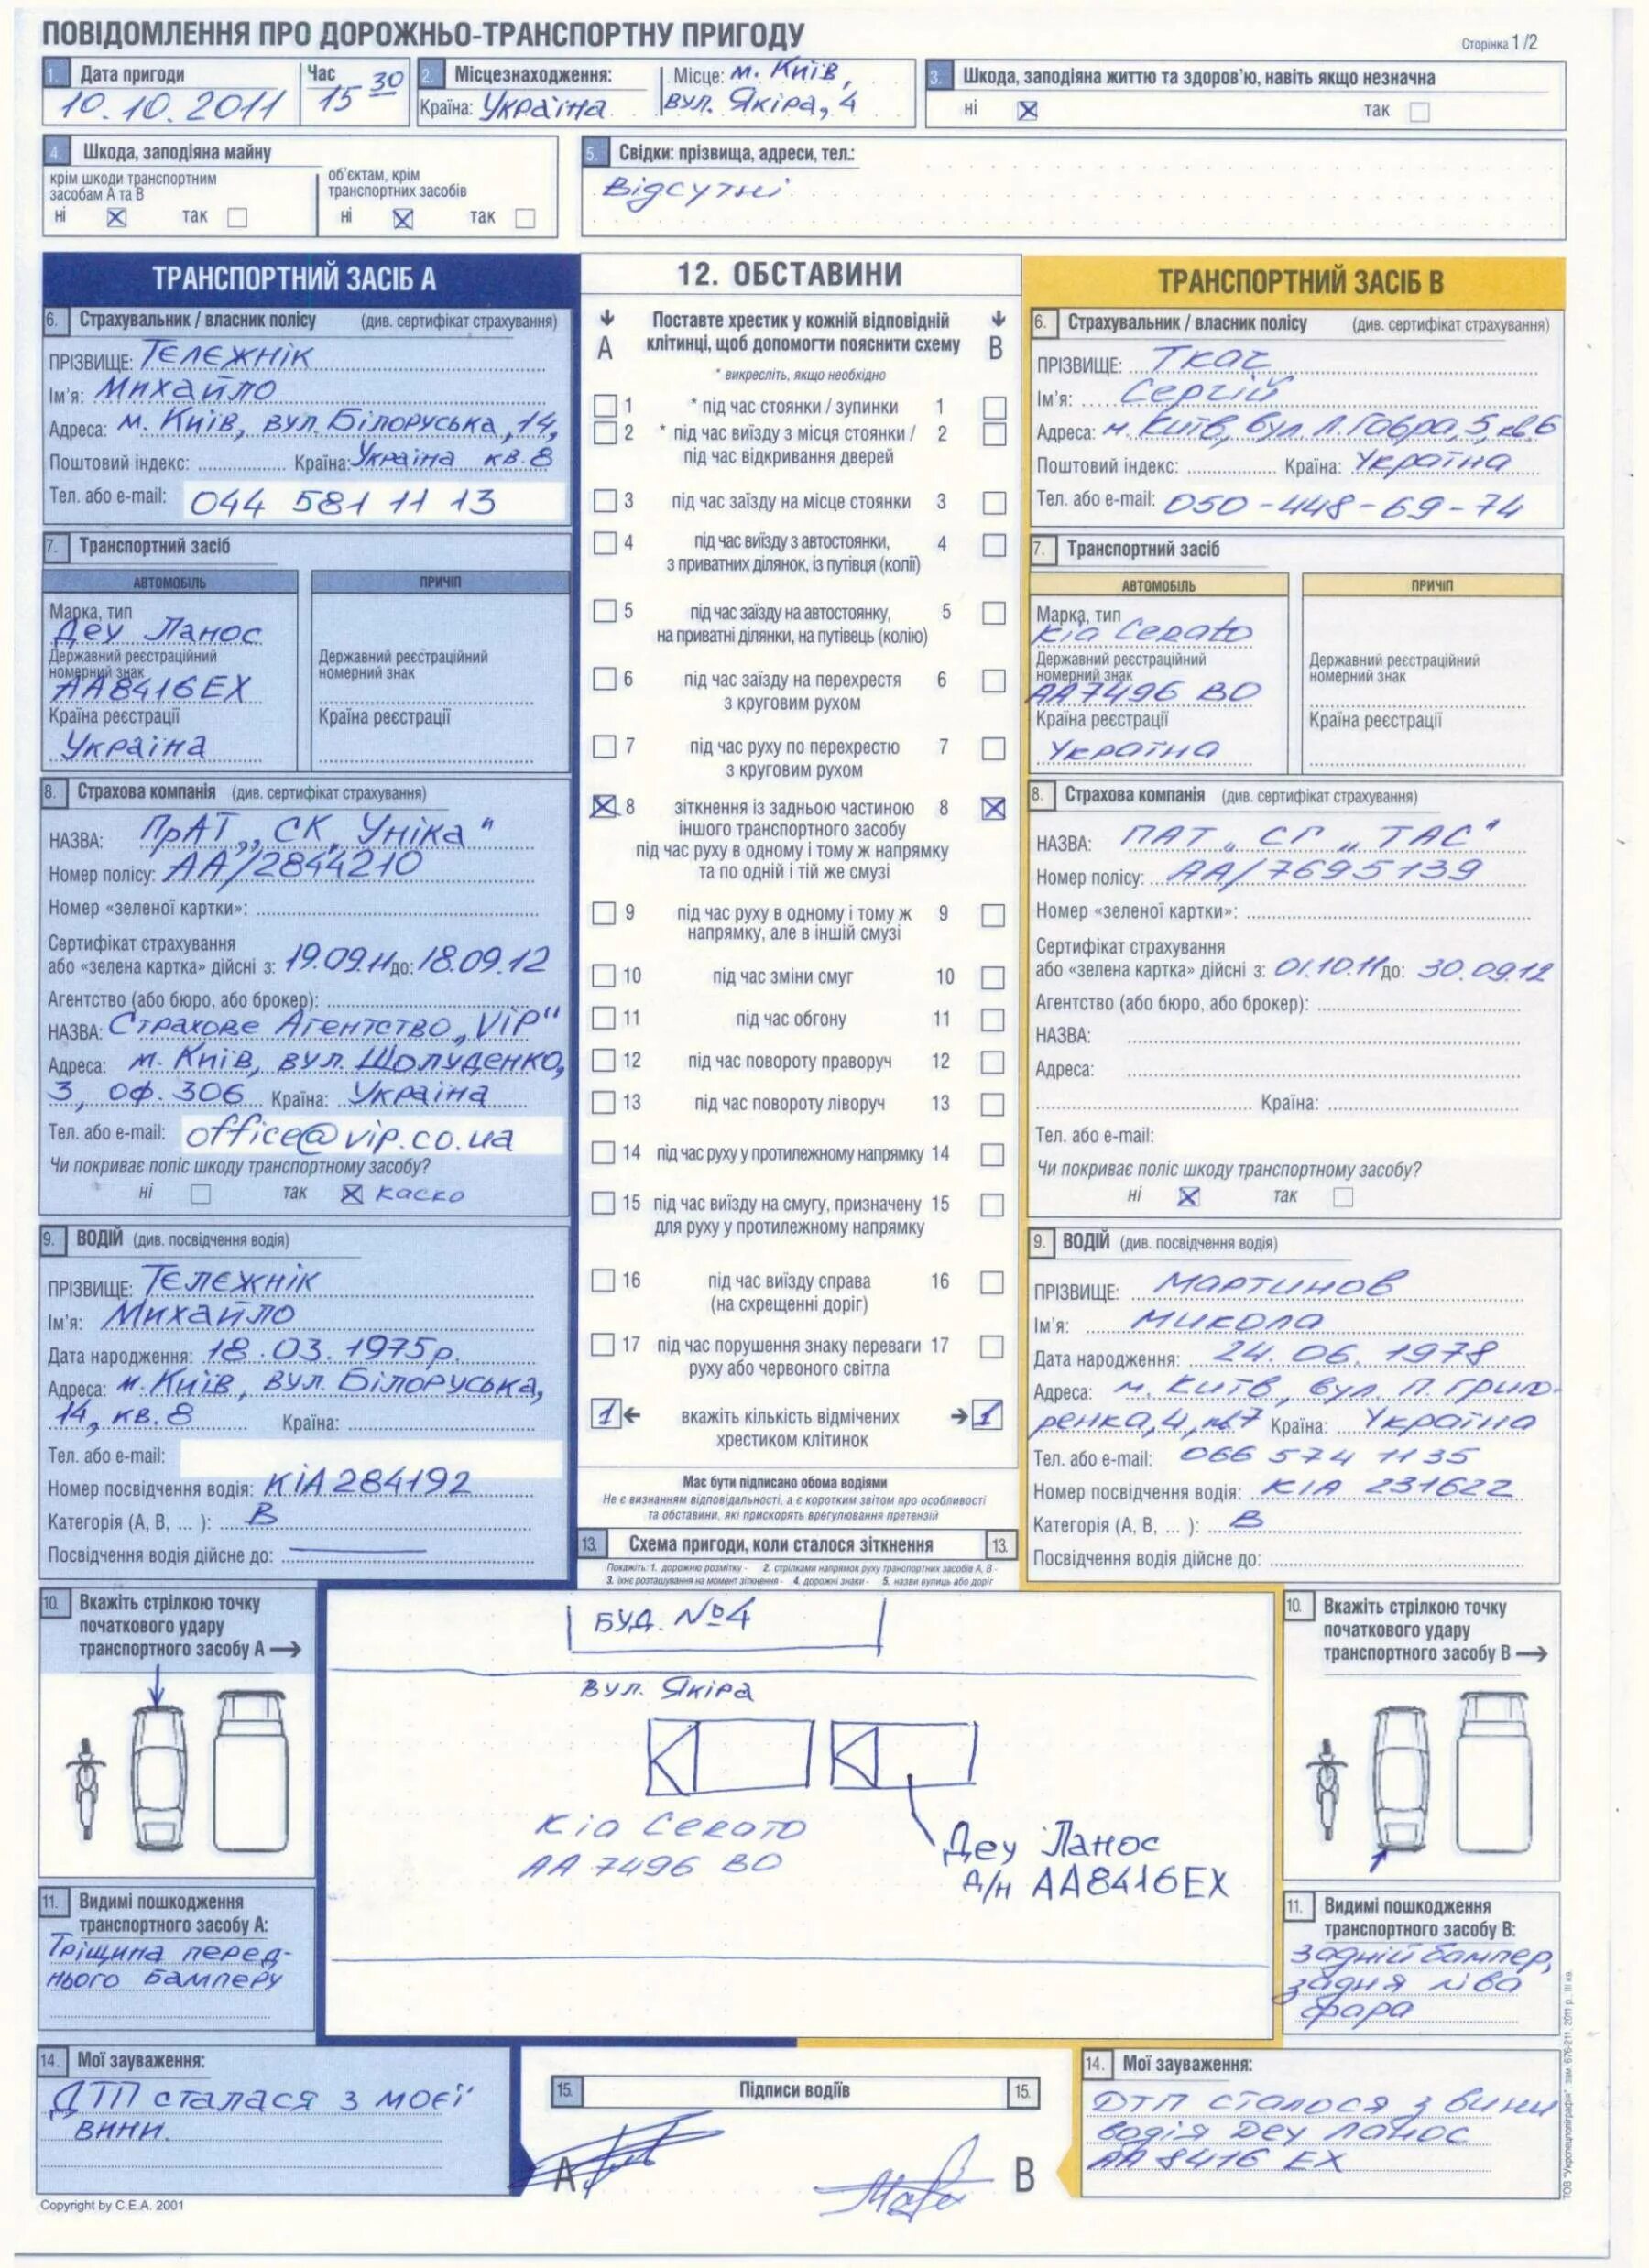 ПОВІДОМЛЕННЯ ПРО ДОРОЖНЬО-ТРАНСПОРТНУ ПРИГОДУ
Сторінка 1/2
1. Дата пригоди
Час
10.10.2011
15 30
2. Місцезнаходження:
Країна: Україна
Місце: м. Київ,
вул. Якіра, 4
3. Шкода, заподіяна життю та здоров'ю, навіть якщо незначна
ні
так
4. Шкода, заподіяна майну
крім шкоди транспортним
засобам А та В
ні
так
об'єктам, крім
транспортних засобів
ні
так
5. Свідки: прізвища, адреси, тел.:
Відсутні
ТРАНСПОРТНИЙ ЗАСІБ А
6. Страхувальник / власник полісу (див. сертифікат страхування)
ПРІЗВИЩЕ: Тєлєжнік
Ім'я: Михайло
Адреса: м. Київ, вул. Білоруська, 14,
Поштовий індекс: Країна: Україна кв. 8
Тел. або e-mail: 044 581 11 13
7. Транспортний засіб
АВТОМОБІЛЬ
ПРИЧІП
Марка, тип
Деу Ланос
Державний реєстраційний
номерний знак
АА8416ЕХ
Країна реєстрації
Україна
Державний реєстраційний
номерний знак
Країна реєстрації
8. Страхова компанія (див. сертифікат страхування)
НАЗВА: ПрАТ „СК „Уніка"
Номер полісу: АА/2844210
Номер «зеленої картки»:
Сертифікат страхування
або «зелена картка» дійсні з: 19.09.11 до: 18.09.12
Агентство (або бюро, або брокер):
НАЗВА: Страхове Агентство „ViP"
Адреса: м. Київ, вул. Шолуденко,
3, оф. 306 Країна: Україна
Тел. або e-mail: office@vip.co.ua
Чи покриває поліс шкоду транспортному засобу?
ні
так
каско
9. ВОДІЙ (див. посвідчення водія)
ПРІЗВИЩЕ: Тєлєжнік
Ім'я: Михайло
Дата народження: 18.03.1975р.
Адреса: м. Київ, вул. Білоруська,
14, кв. 8 Країна:
Тел. або e-mail:
Номер посвідчення водія: КІА 284192
Категорія (А, В, ... ): В
Посвідчення водія дійсне до:
12. ОБСТАВИНИ
А
Поставте хрестик у кожній відповідній
клітинці, щоб допомогти пояснити схему
В
* викресліть, якщо необхідно
1 * під час стоянки / зупинки 1
2 * під час виїзду з місця стоянки / 2
під час відкривання дверей
3 під час заїзду на місце стоянки 3
4 під час виїзду з автостоянки, 4
з приватних ділянок, із путівця (колії)
5 під час заїзду на автостоянку, 5
на приватні ділянки, на путівець (колію)
6 під час заїзду на перехрестя 6
з круговим рухом
7 під час руху по перехрестю 7
з круговим рухом
8 зіткнення із задньою частиною 8
іншого транспортного засобу
під час руху в одному і тому ж напрямку
та по одній і тій же смузі
9 під час руху в одному і тому ж 9
напрямку, але в іншій смузі
10 під час зміни смуг 10
11 під час обгону 11
12 під час повороту праворуч 12
13 під час повороту ліворуч 13
14 під час руху у протилежному напрямку 14
15 під час виїзду на смугу, призначену 15
для руху у протилежному напрямку
16 під час виїзду справа 16
(на схрещенні доріг)
17 під час порушення знаку переваги 17
руху або червоного світла
1 вкажіть кількість відмічених 1
хрестиком клітинок
Має бути підписано обома водіями
Не є визнанням відповідальності, а є коротким звітом про особливості
та обставини, які прискорять врегулювання претензій
13. Схема пригоди, коли сталося зіткнення 13.
Покажіть: 1. дорожню розмітку - 2. стрілками напрямок руху транспортних засобів А, В -
3. їхнє розташування на момент зіткнення - 4. дорожні знаки - 5. назви вулиць або доріг
ТРАНСПОРТНИЙ ЗАСІБ В
6. Страхувальник / власник полісу (див. сертифікат страхування)
ПРІЗВИЩЕ: Ткач
Ім'я: Сергій
Адреса: м. Київ, бул. Л. Гавра, 5, кв. 6
Поштовий індекс: Країна: Україна
Тел. або e-mail: 050-448-69-74
7. Транспортний засіб
АВТОМОБІЛЬ
ПРИЧІП
Марка, тип
Kia Cerato
Державний реєстраційний
номерний знак
АА7496 ВО
Країна реєстрації
Україна
Державний реєстраційний
номерний знак
Країна реєстрації
8. Страхова компанія (див. сертифікат страхування)
НАЗВА: ПАТ „СГ „ТАС"
Номер полісу: АА/7695139
Номер «зеленої картки»:
Сертифікат страхування
або «зелена картка» дійсні з: 01.10.11 до: 30.09.12
Агентство (або бюро, або брокер):
НАЗВА:
Адреса:
Країна:
Тел. або e-mail:
Чи покриває поліс шкоду транспортному засобу?
ні
так
9. ВОДІЙ (див. посвідчення водія)
ПРІЗВИЩЕ: Мартинов
Ім'я: Микола
Дата народження: 24.06.1978
Адреса: м. Київ, вул. П. Григо-
ренка, 4, кв. 7 Країна: Україна
Тел. або e-mail: 066 574 1135
Номер посвідчення водія: КІА 231622
Категорія (А, В, ... ): В
Посвідчення водія дійсне до:
10. Вкажіть стрілкою точку
початкового удару
транспортного засобу А
11. Видимі пошкодження
транспортного засобу А:
Тріщина перед-
нього бамперу
БУД. №4
Вул. Якіра
Kia Cerato
АА 7496 ВО
Деу Ланос
д/н АА8416ЕХ
10. Вкажіть стрілкою точку
початкового удару
транспортного засобу В
11. Видимі пошкодження
транспортного засобу В:
задній бампер,
задня ліва
фара
14. Мої зауваження:
ДТП сталася з моєї
вини.
15. Підписи водіїв 15.
А
В
14. Мої зауваження:
ДТП сталося з вини
водія Деу Ланос
АА 8416 ЕХ
Copyright by C.E.A. 2001
ТОВ "Укрспецполіграфія", зам. 676-211, 2011 р., III кв.